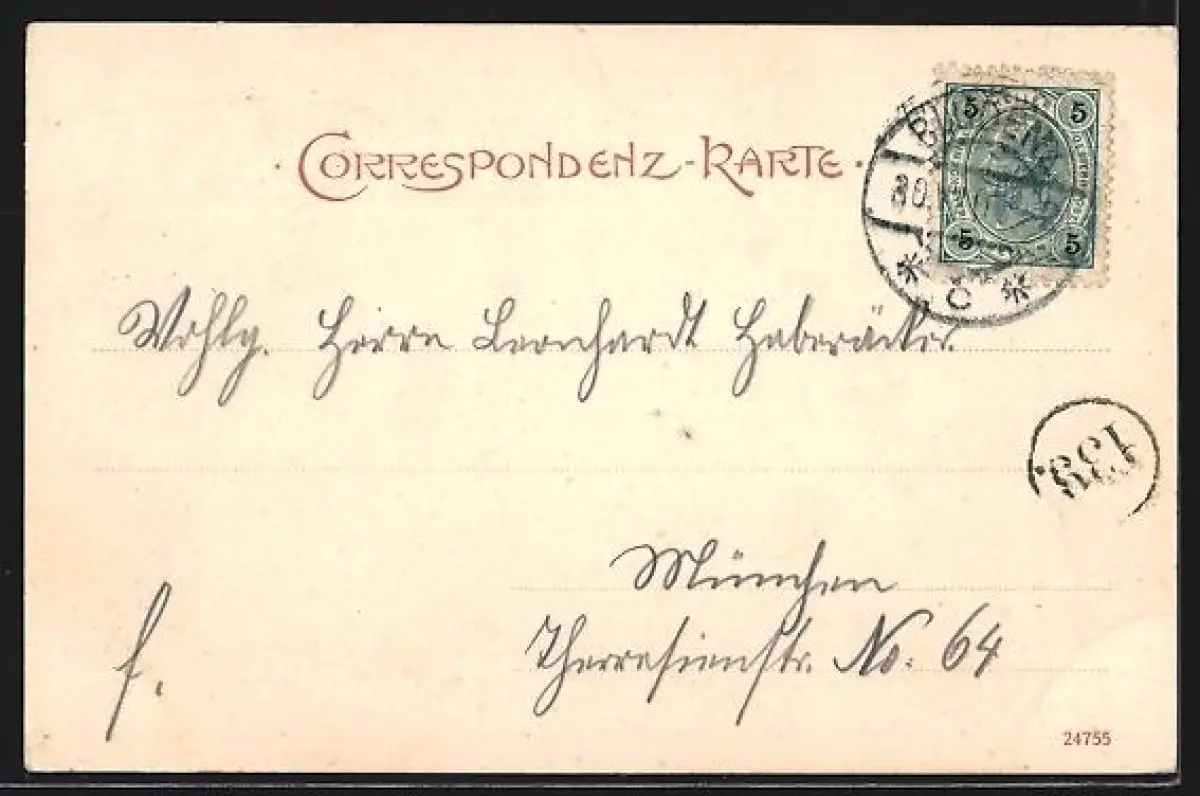 · CORRESPONDENZ-KARTE ·
5 5
5 5
80
* C *
Wohlg. Herrn Leonhardt Haberäcker
133.
München
Therresienstr. No. 64
f.
24755